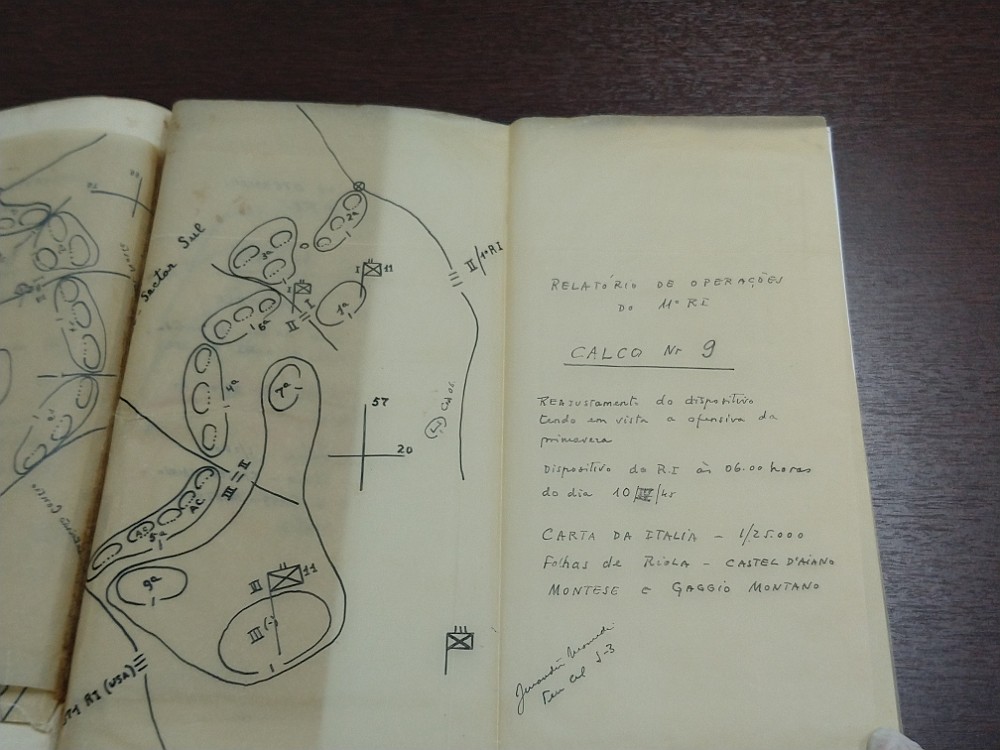 Sector Sul
2ª
3ª
II/1º RI
I 11
1ª
6ª
II
4ª
7ª
57
20
III = II
AC
AC
5ª
9ª
III 11
III (-)
371 RI (USA)
RELATÓRIO DE OPERAÇÕES
DO 11º RI
CALCO Nr 9
REAJUSTAMENTO do dispositivo
tendo em vista a ofensiva da
primavera
Dispositivo do R.I às 06.00 horas
do dia 10/IV/45
CARTA DA ITALIA - 1/25.000
Folhas de RIOLA - CASTEL D'AIANO
MONTESE e GAGGIO MONTANO
Ten Cel S-3